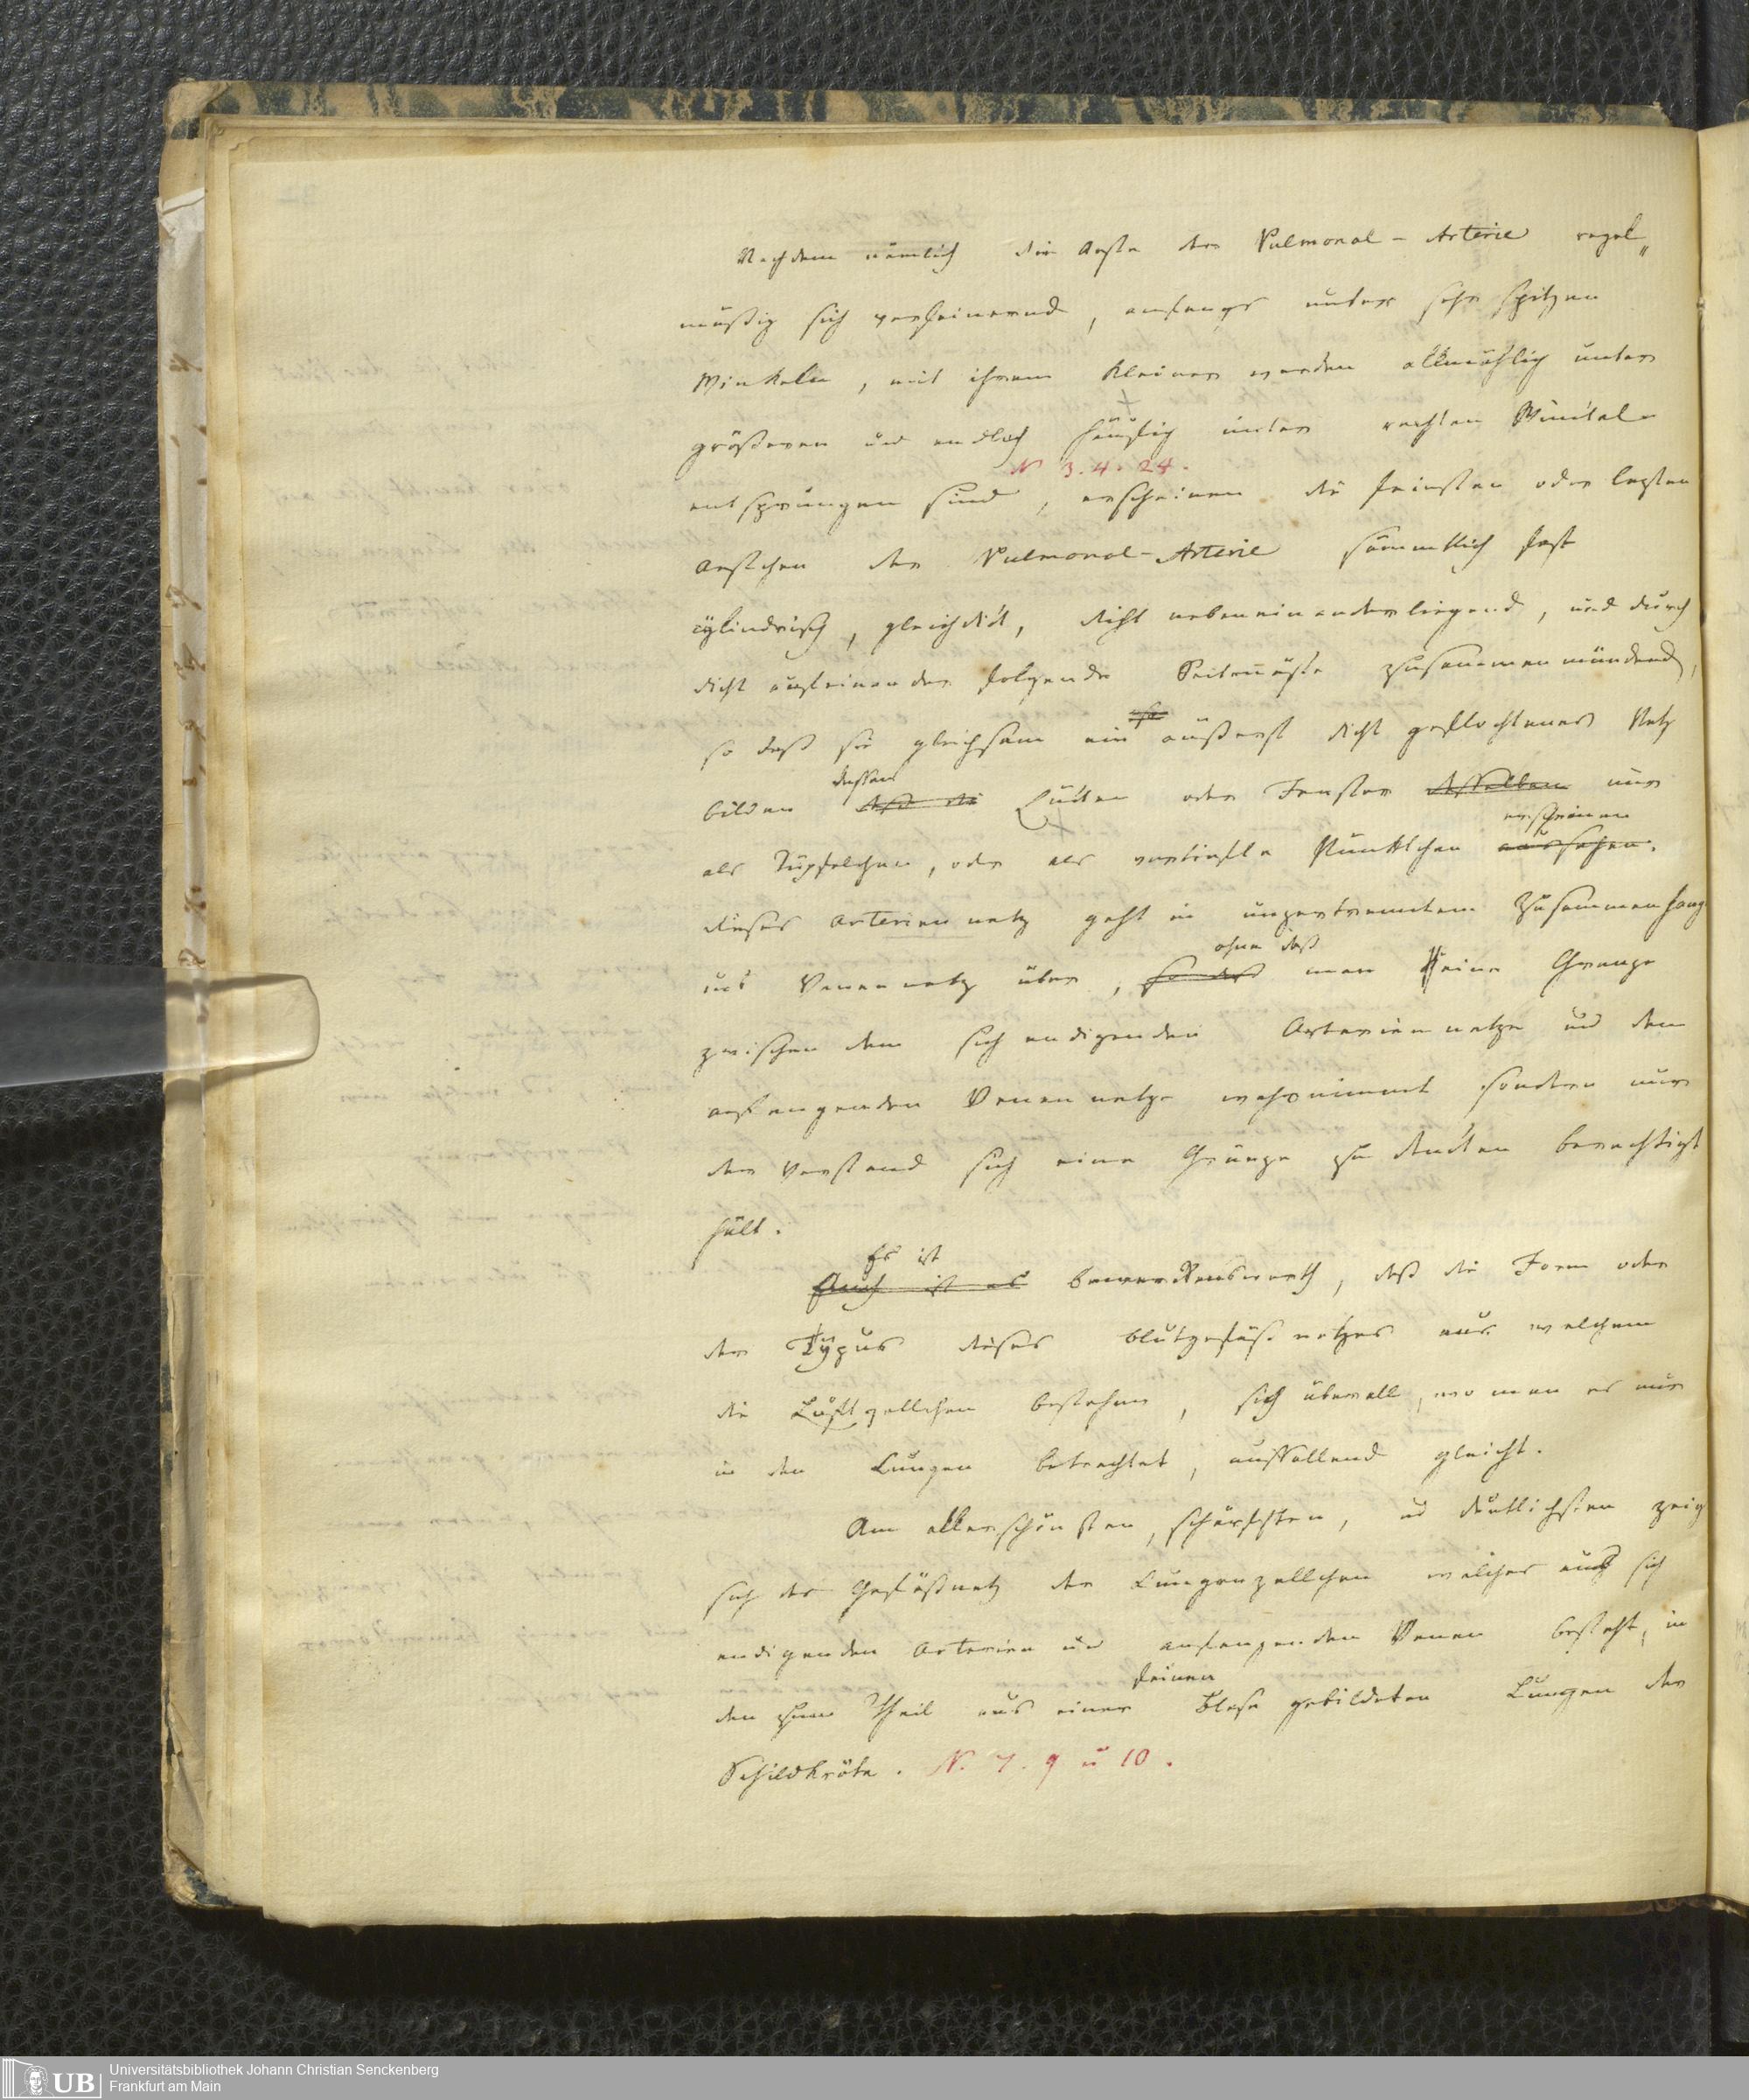 Nachdem nämlich die Aeste der Pulmonal-Arterie regel„
mäßig sich verfeinernd, anfangs unter sehr spitzen
Winkeln, mit ihrem Kleiner werden allmählig unter
größeren und endlich häufig unter rechten Winkel
N 3. 4. 24.
entsprungen sind, erscheinen die feinsten oder lezten
Aestchen der Pulmonal-Arterie sämmtlich fast
cylindrisch, gleichdick, dicht nebeneinanderliegend, und durch
dicht aufeinander folgende Seitenäste zusammenmündend,
so daß sie gleichsam ein äußerst dicht geflochtenes Netz
dessen
bilden daß die Lücken oder Fenster desselben nur
erscheinen
als Tüpfelchen, oder als vertiefte Pünktchen aussehen.
dieses Arteriennetz geht in unzertrenntem Zusammenhang
ohne daß
ins Venennetz über, so daß man keine Grenze
zwischen dem sich endigenden Arteriennetze und dem
anfangenden Venennetze wahrnimmt sondern nur
der Verstand sich eine Gränze zu denken berechtigt
hält.
Es ist
Auch ist es bemerkenswerth, daß die Form oder
der Typus dieses Blutgefäßnetzes aus welchem
die Luftzellchen bestehen, sich überall, wo man es nur
in den Lungen betrachtet, auffallend gleicht.
Am allerschönsten, schärfsten, und deutlichsten zeig
sich das Gefäßnetz der Lungenzellchen welches aus sich
endigenden Arterien und anfangenden Venen besteht, in
feinen
den zum Theil aus einer Blase gebildeten Lungen der
Schildkröte. N. 7. 9 u 10.
Universitätsbibliothek Johann Christian Senckenberg
Frankfurt am Main
UB